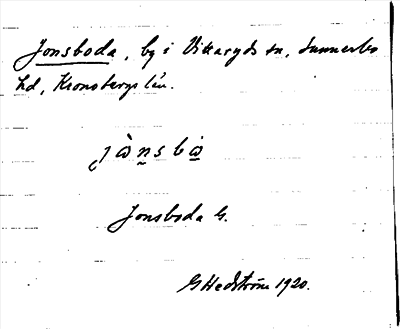 Jonsboda, by i Vittaryds sn, Sunnerbo
hd, Kronobergs län.
Jonsboda G.
G Hedström 1920.